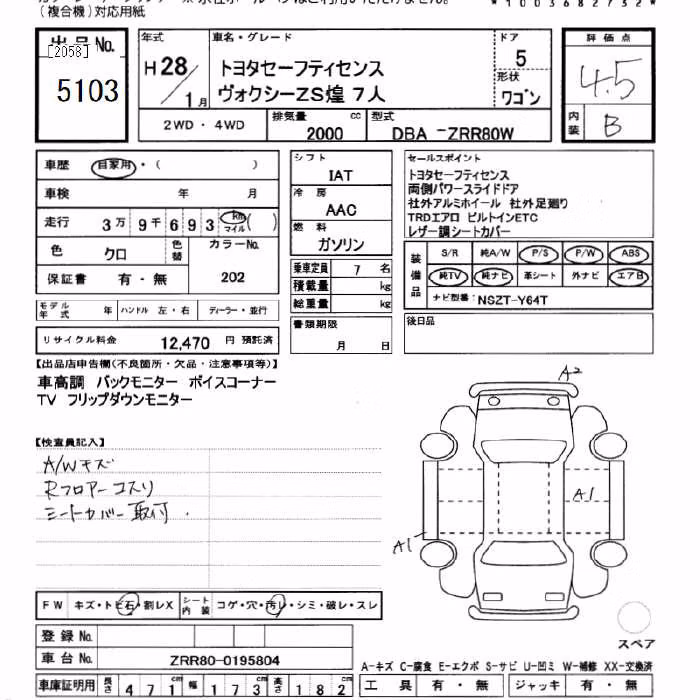 (複合機)対応用紙
*1003682732*
出品No.
[2058]
5103
年式
H28/1月
車名・グレード
トヨタセーフティセンス
ヴォクシーZS煌 7人
ドア
5
形状
ワゴン
評価点
4.5
内装
B
2WD・4WD
排気量 cc
2000
型式
DBA -ZRR80W
車歴 自家用・( )
車検 年 月
走行 3万9千693 km マイル ( )
色 クロ 色替
カラーNo.
202
保証書 有・無
モデル年式 年 ハンドル 左・右 ディーラー・並行
リサイクル料金 12,470 円 預託済
シフト
IAT
冷房
AAC
燃料
ガソリン
乗車定員 7 名
積載量 kg
総重量 kg
書類期限
月 日
セールスポイント
トヨタセーフティセンス
両側パワースライドドア
社外アルミホイール 社外足廻り
TRDエアロ ビルトインETC
レザー調シートカバー
装備品
S/R 純A/W P/S P/W ABS
純TV 純ナビ 革シート 外ナビ エアB
ナビ型番: NSZT-Y64T
後日品
【出品店申告欄(不良箇所・欠品・注意事項等)】
車高調 バックモニター ボイスコーナー
TV フリップダウンモニター
【検査員記入】
A/Wキズ
Rフロアーコスリ
シートカバー取付.
A2
A1
A1
スペア
FW キズ・トビ石・割レX シート内装 コゲ・穴・汚レ・シミ・破レ・スレ
登録No.
車台No. ZRR80-0195804
車庫証明用 長さ 471 cm 幅 173 cm 高さ 182 cm
A-キズ C-腐食 E-エクボ S-サビ U-凹ミ W-補修 XX-交換済
工具 有・無 ジャッキ 有・無